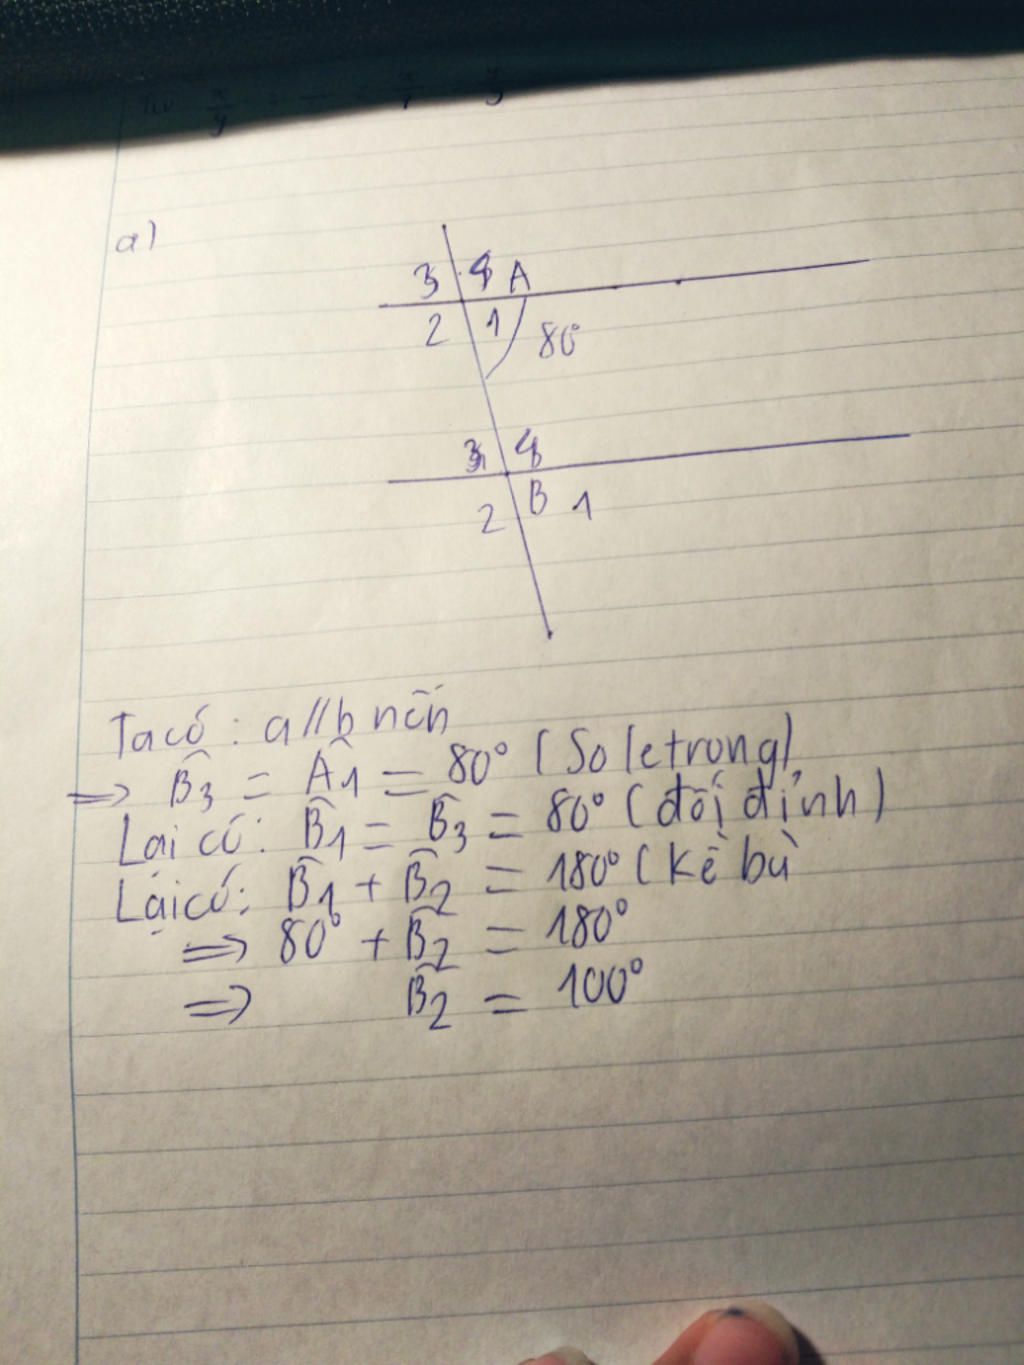 a)
3 4 A
2 1 80°
3 4
2 B 1
Ta có: a//b nên
=> B̂3 = Â1 = 80° (So le trong)
Lại có: B̂1 = B̂3 = 80° (đối đỉnh)
Lại có: B̂1 + B̂2 = 180° (kề bù
=> 80° + B̂2 = 180°
=> B̂2 = 100°